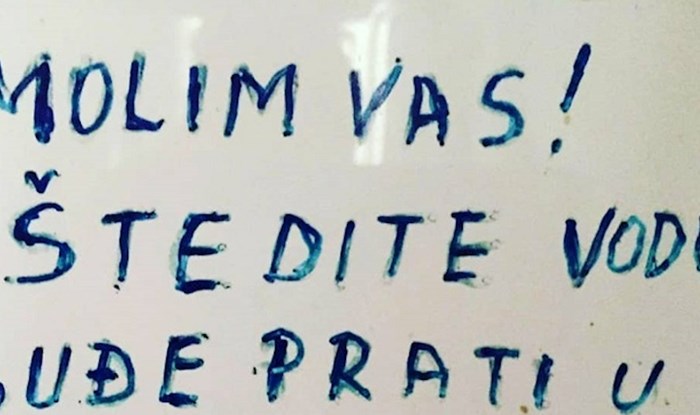 MOLIM VAS!
ŠTEDITE VOD
UĐE PRATI U